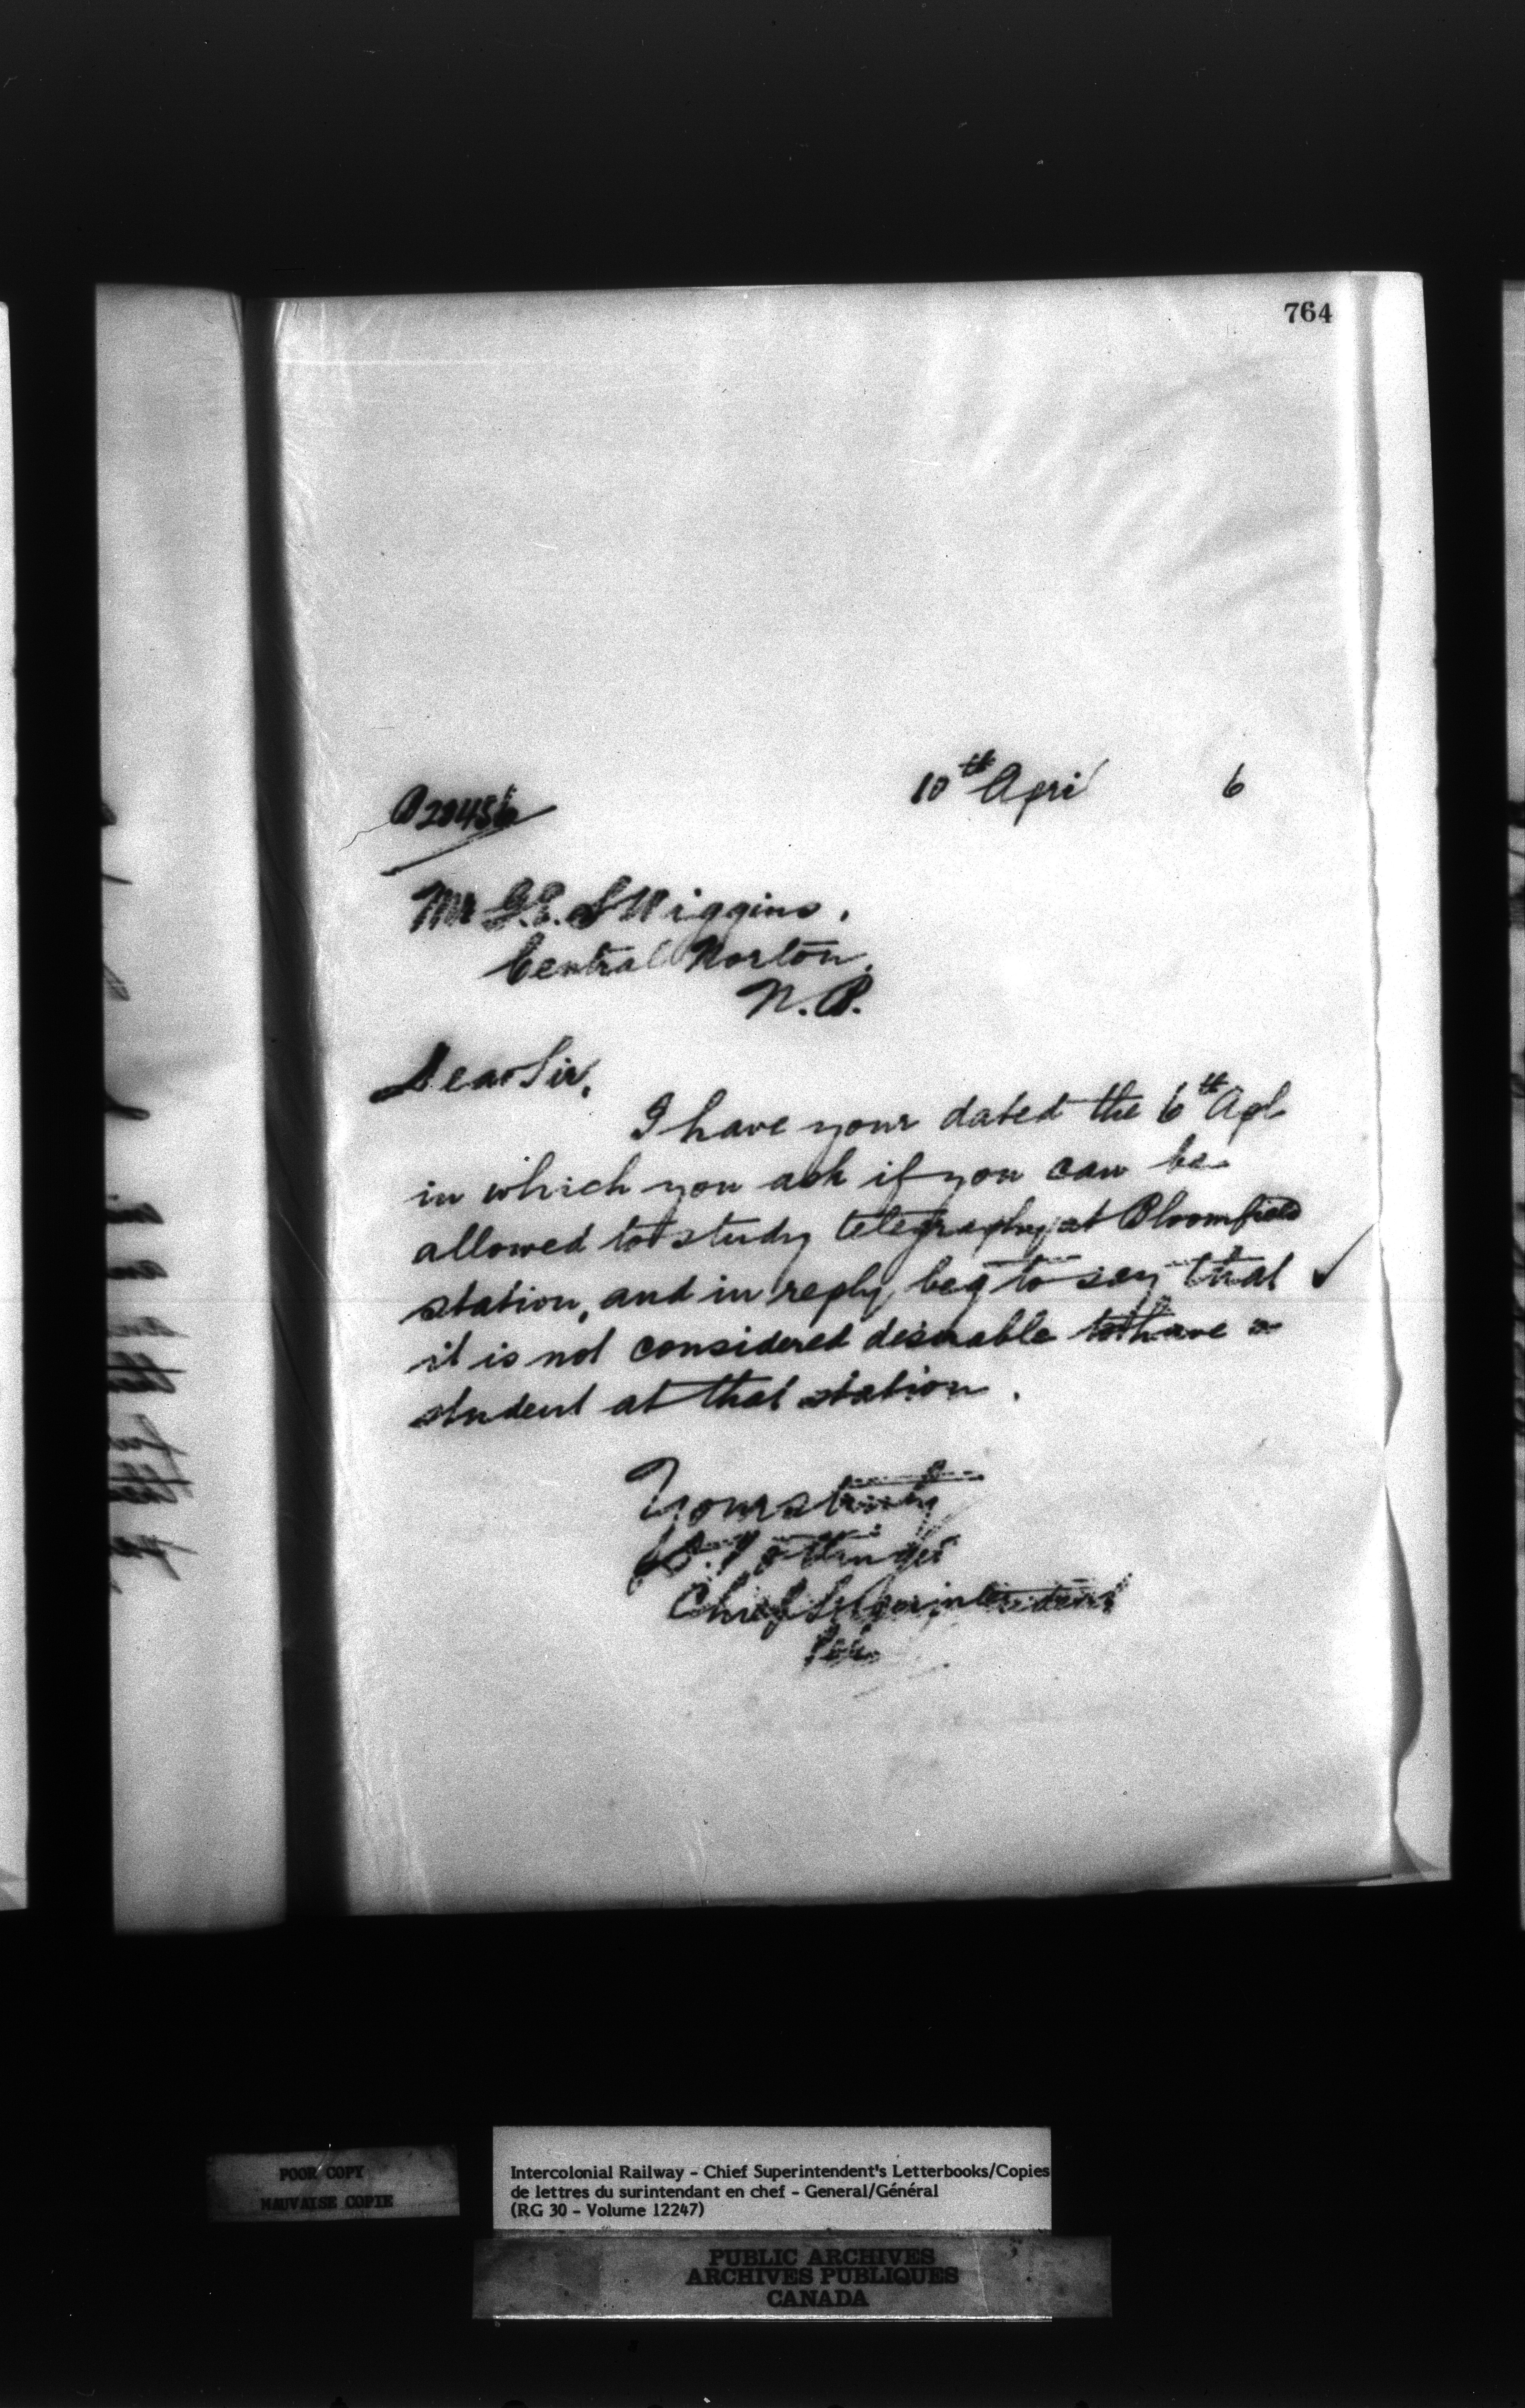 764
10th April 6
Mr G.E.S Wiggins,
Central Norton,
N.B.
Dear Sir,
I have your dated the 6th Apl
in which you ask if you can be
allowed to study telegraphy at Bloomfield
station, and in reply, beg to say that
it is not considered desirable to have a
student at that station.
Yours truly
D. Pottinger
Chief Superintendent
POOR COPY
MAUVAISE COPIE
Intercolonial Railway - Chief Superintendent's Letterbooks/Copies
de lettres du surintendant en chef - General/Général
(RG 30 - Volume 12247)
PUBLIC ARCHIVES
ARCHIVES PUBLIQUES
CANADA